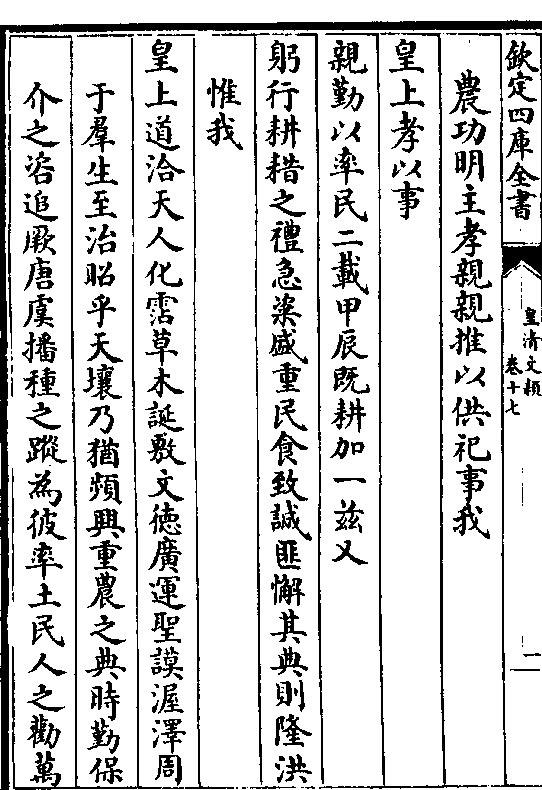 欽定四庫全書
皇清文穎
卷十七
一
農功明主孝親親推以供祀事我
皇上孝以事
親勤以率民二載甲辰既耕加一兹又
躬行耕耤之禮急粢盛重民食致誠匪懈其典則隆洪
惟我
皇上道洽天人化霑草木誕敷文徳廣運聖謨渥澤周
于羣生至治昭乎天壤乃猶頻興重農之典時勤保
介之咨追厥唐虞播種之蹤為彼率土民人之勸萬